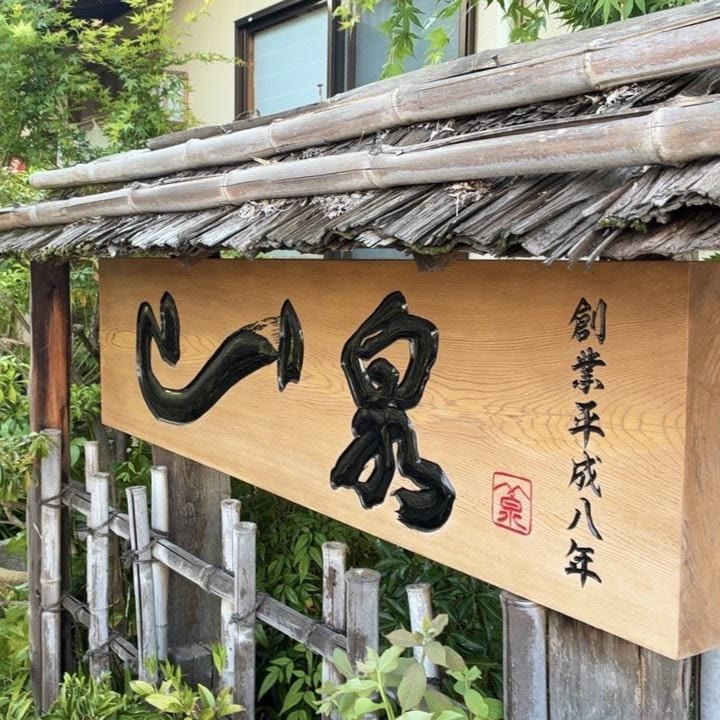 山泉
創業平成八年
泉